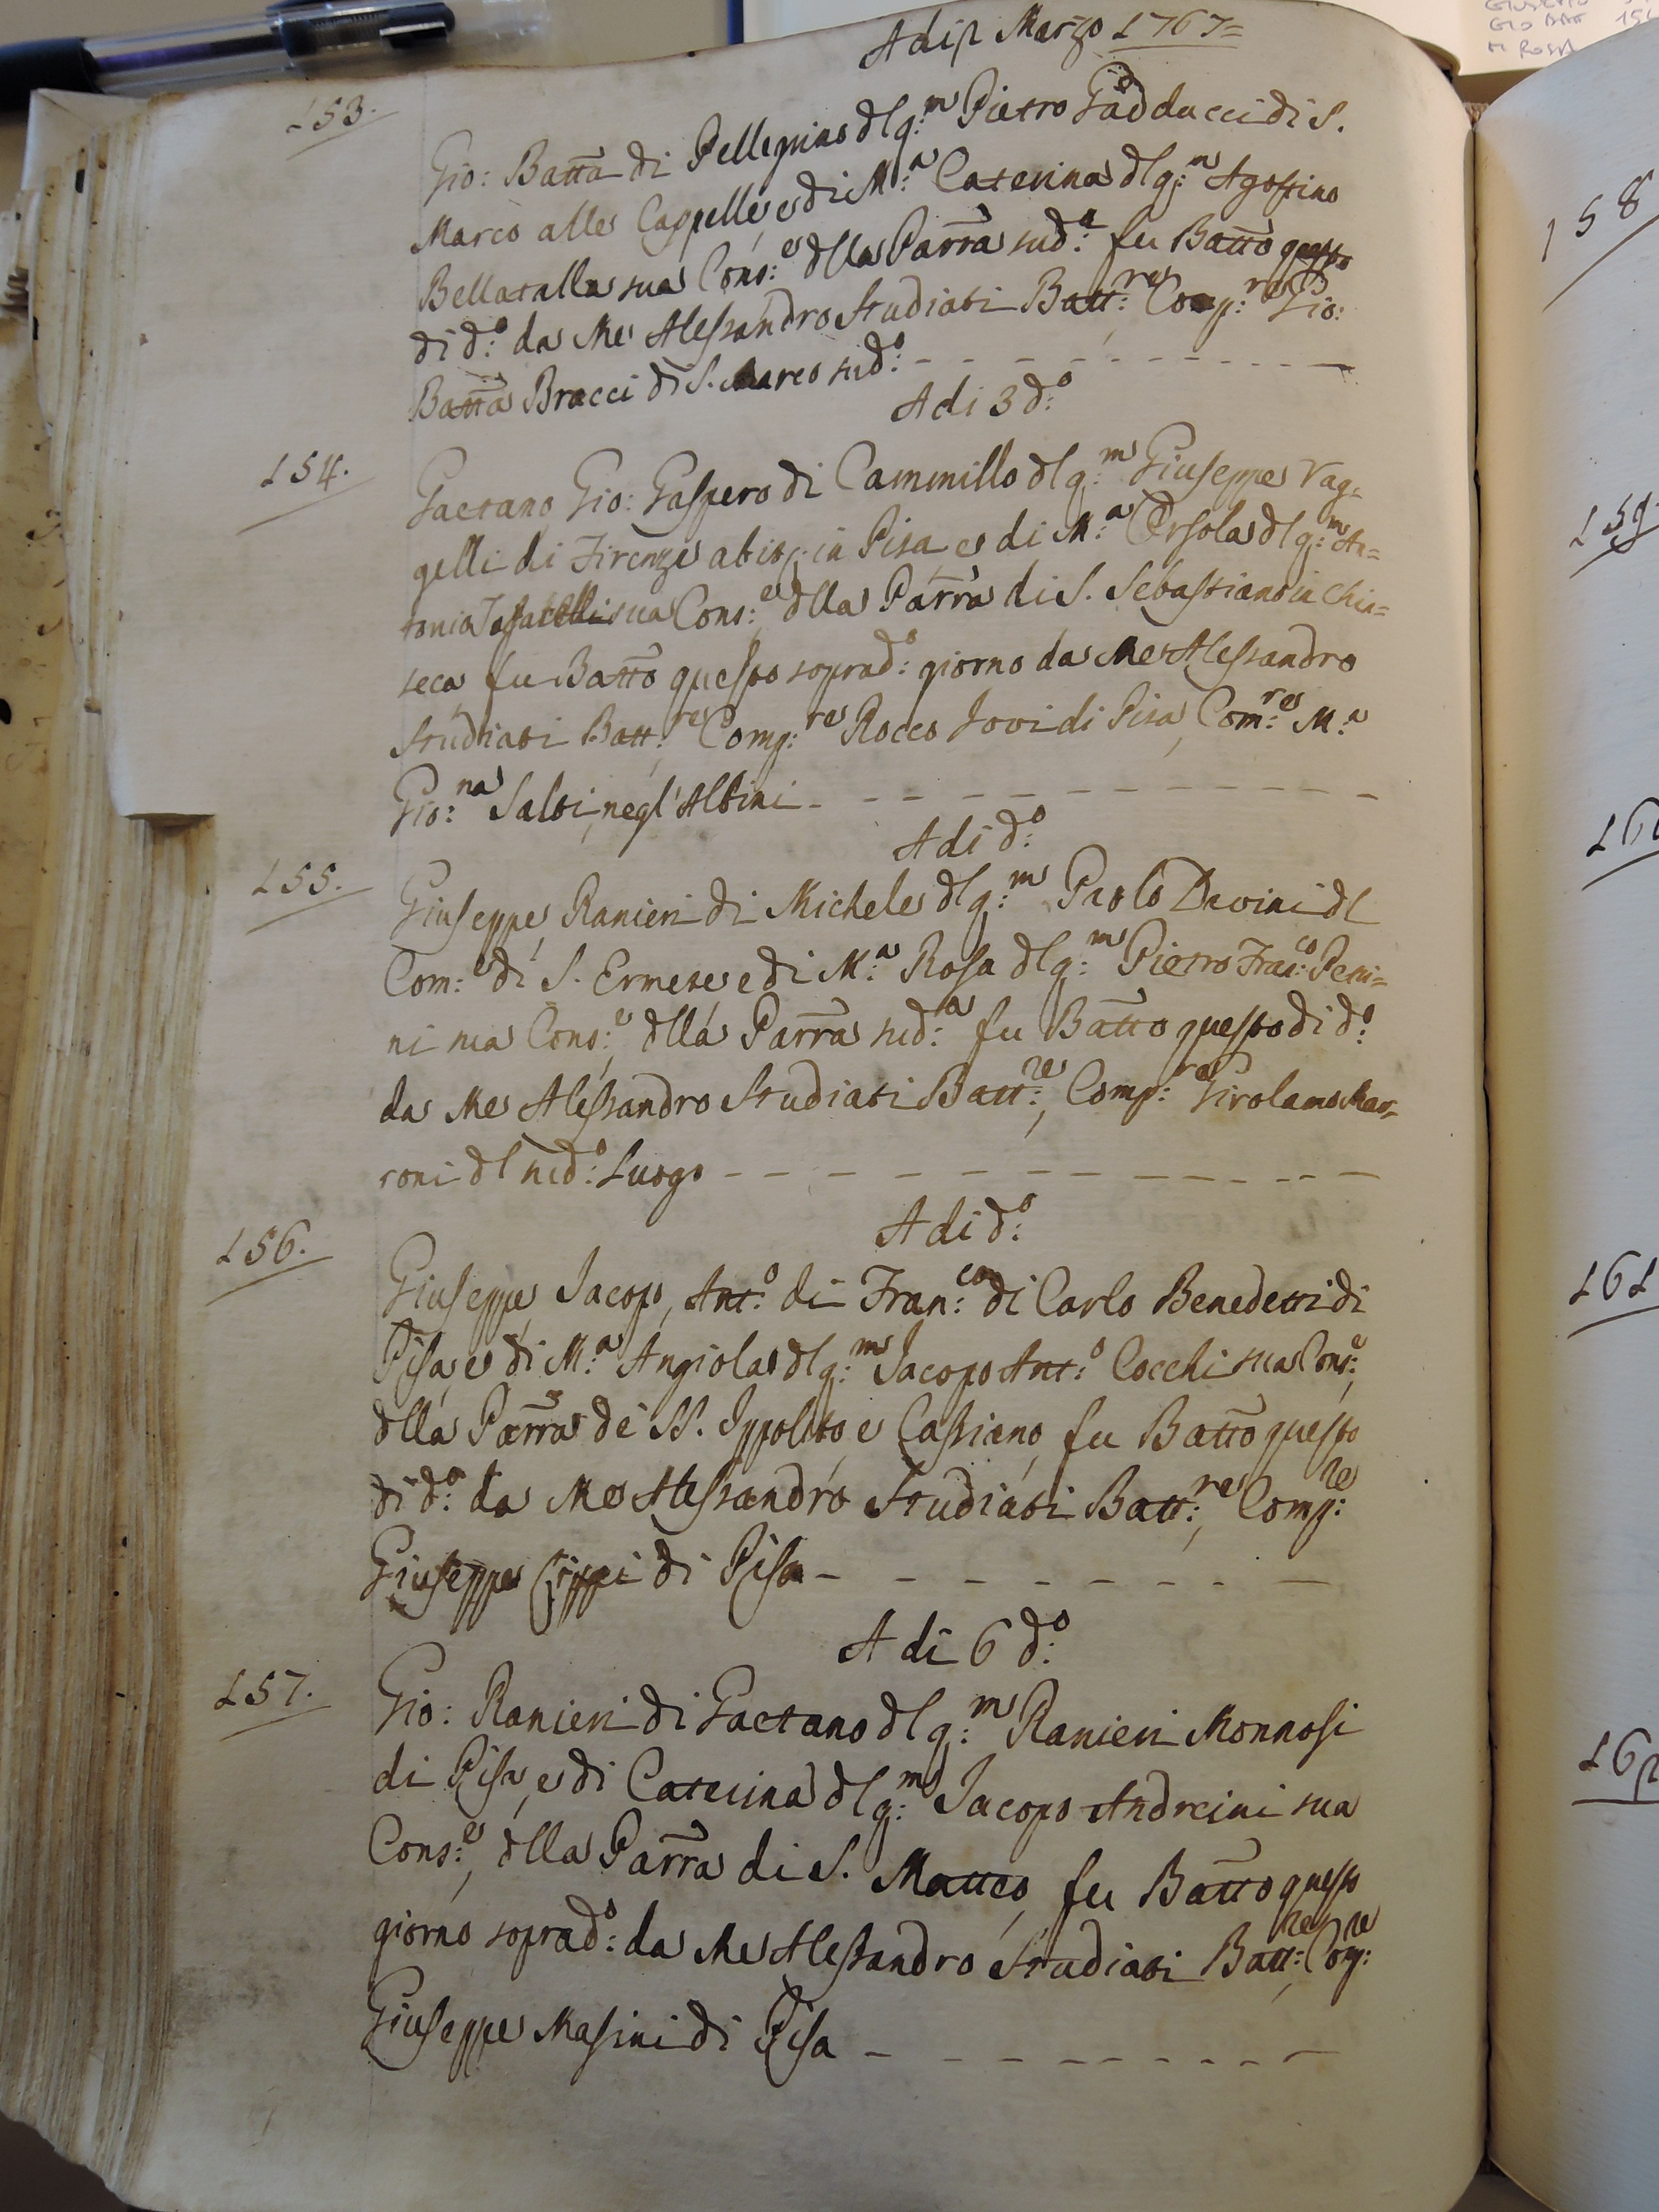 Adi 2 Marzo 1767=
153.
Gio: Batta di Pellegrino dl q:m Pietro Gadducci di S.
Marco alle Cappelle, e di M:a Caterina dl q:m Agostino
Bellatalla sua Cons:e dlla Parra sud:a fu Batto questo
di d:o da Me Alessandro Studiati Batt:re Comp:re Gio:
Batta Bracci di S. Marco sud:o
Adi 3 d:o
154.
Gaetano Gio: Gaspero di Cammillo dl q:m Giuseppe Vag=
gelli di Firenze abit: in Pisa e di M:a Orsola dl q:m An=
tonio sua Cons:e dlla Parra di S. Sebastiano in Chin=
seca fu Batto questo soprad:o giorno da Me Alessandro
Studiati Batt:re Comp:re Rocco Jovi di Pisa, Com:re M:a
Gio:na Salvi, negl'Albini
Adi d:o
155.
Giuseppe Ranieri di Michele dl q:m Paolo Davini dl
Com:e di S. Ermete e di M:a Rosa dl q:m Pietro Fran:co Peri=
ni sua Cons:e, dlla Parra sud:a fu Batto questo di d:o
da Me Alessandro Studiati Batt:re, Comp:re Girolamo Mar=
roni dl sud:o Luogo
Adi d:o
156.
Giuseppe, Jacopo, Ant:o di Fran:co di Carlo Benedetti di
Pisa, e di M:a Angiola dl q:m Jacopo Ant:o Cocchi sua Cons:e,
dlla Parra de SS. Ippolito, e Cassiano, fu Batto questo
di d:o da Me Alessandro Studiati Batt:re, Comp:re
Giuseppe di Pisa
Adi 6 d:o
157.
Gio: Ranieri di Gaetano dl q:m Ranieri Monnosi
di Pisa, e di Caterina dl q:m Jacopo Andreini sua
Cons:e, dlla Parra di S. Matteo, fu Batto questo
giorno soprad:o da Me Alessandro Studiati Batt:re, Comp:re
Giuseppe Masini di Pisa
158
159
161
162